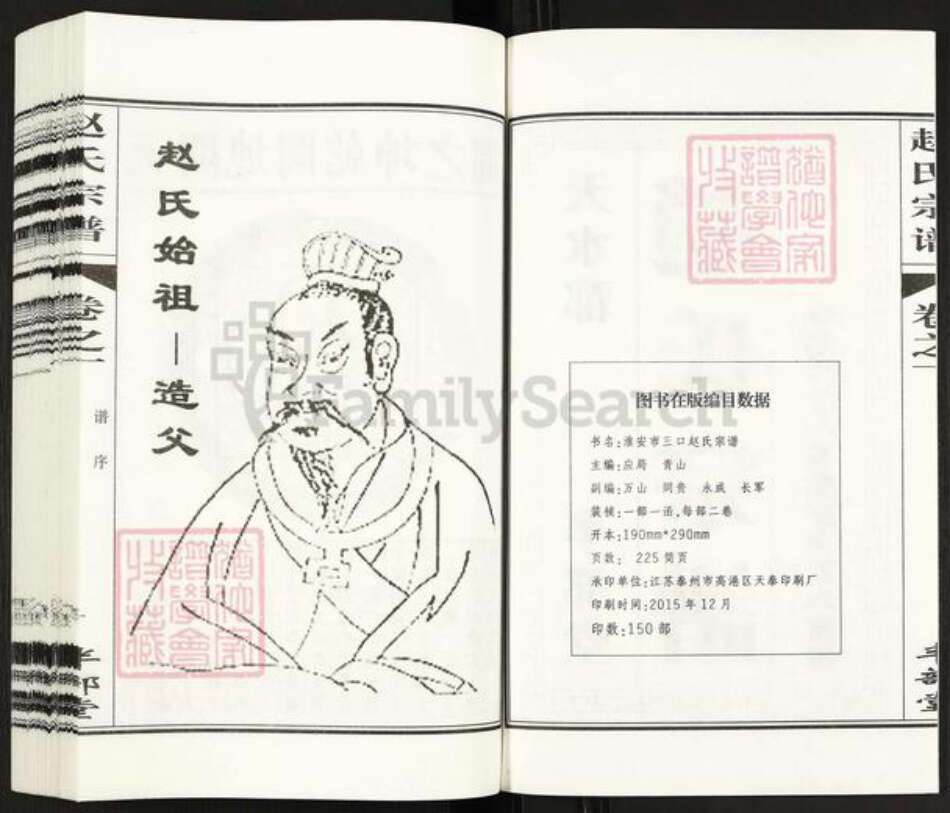 赵氏宗谱
卷之一
谱序
半部堂
赵氏始祖—造父
猶他家譜學會收藏
FamilySearch
猶他家譜學會收藏
图书在版编目数据
书名:淮安市三口赵氏宗谱
主编:应局 青山
副编:万山 同贵 永成 长军
装帧:一部一函,每部二卷
开本:190mm*290mm
页数: 225筒页
承印单位:江苏泰州市高港区天泰印刷厂
印刷时间:2015年12月
印数:150部
赵氏宗谱
卷之一
半部堂